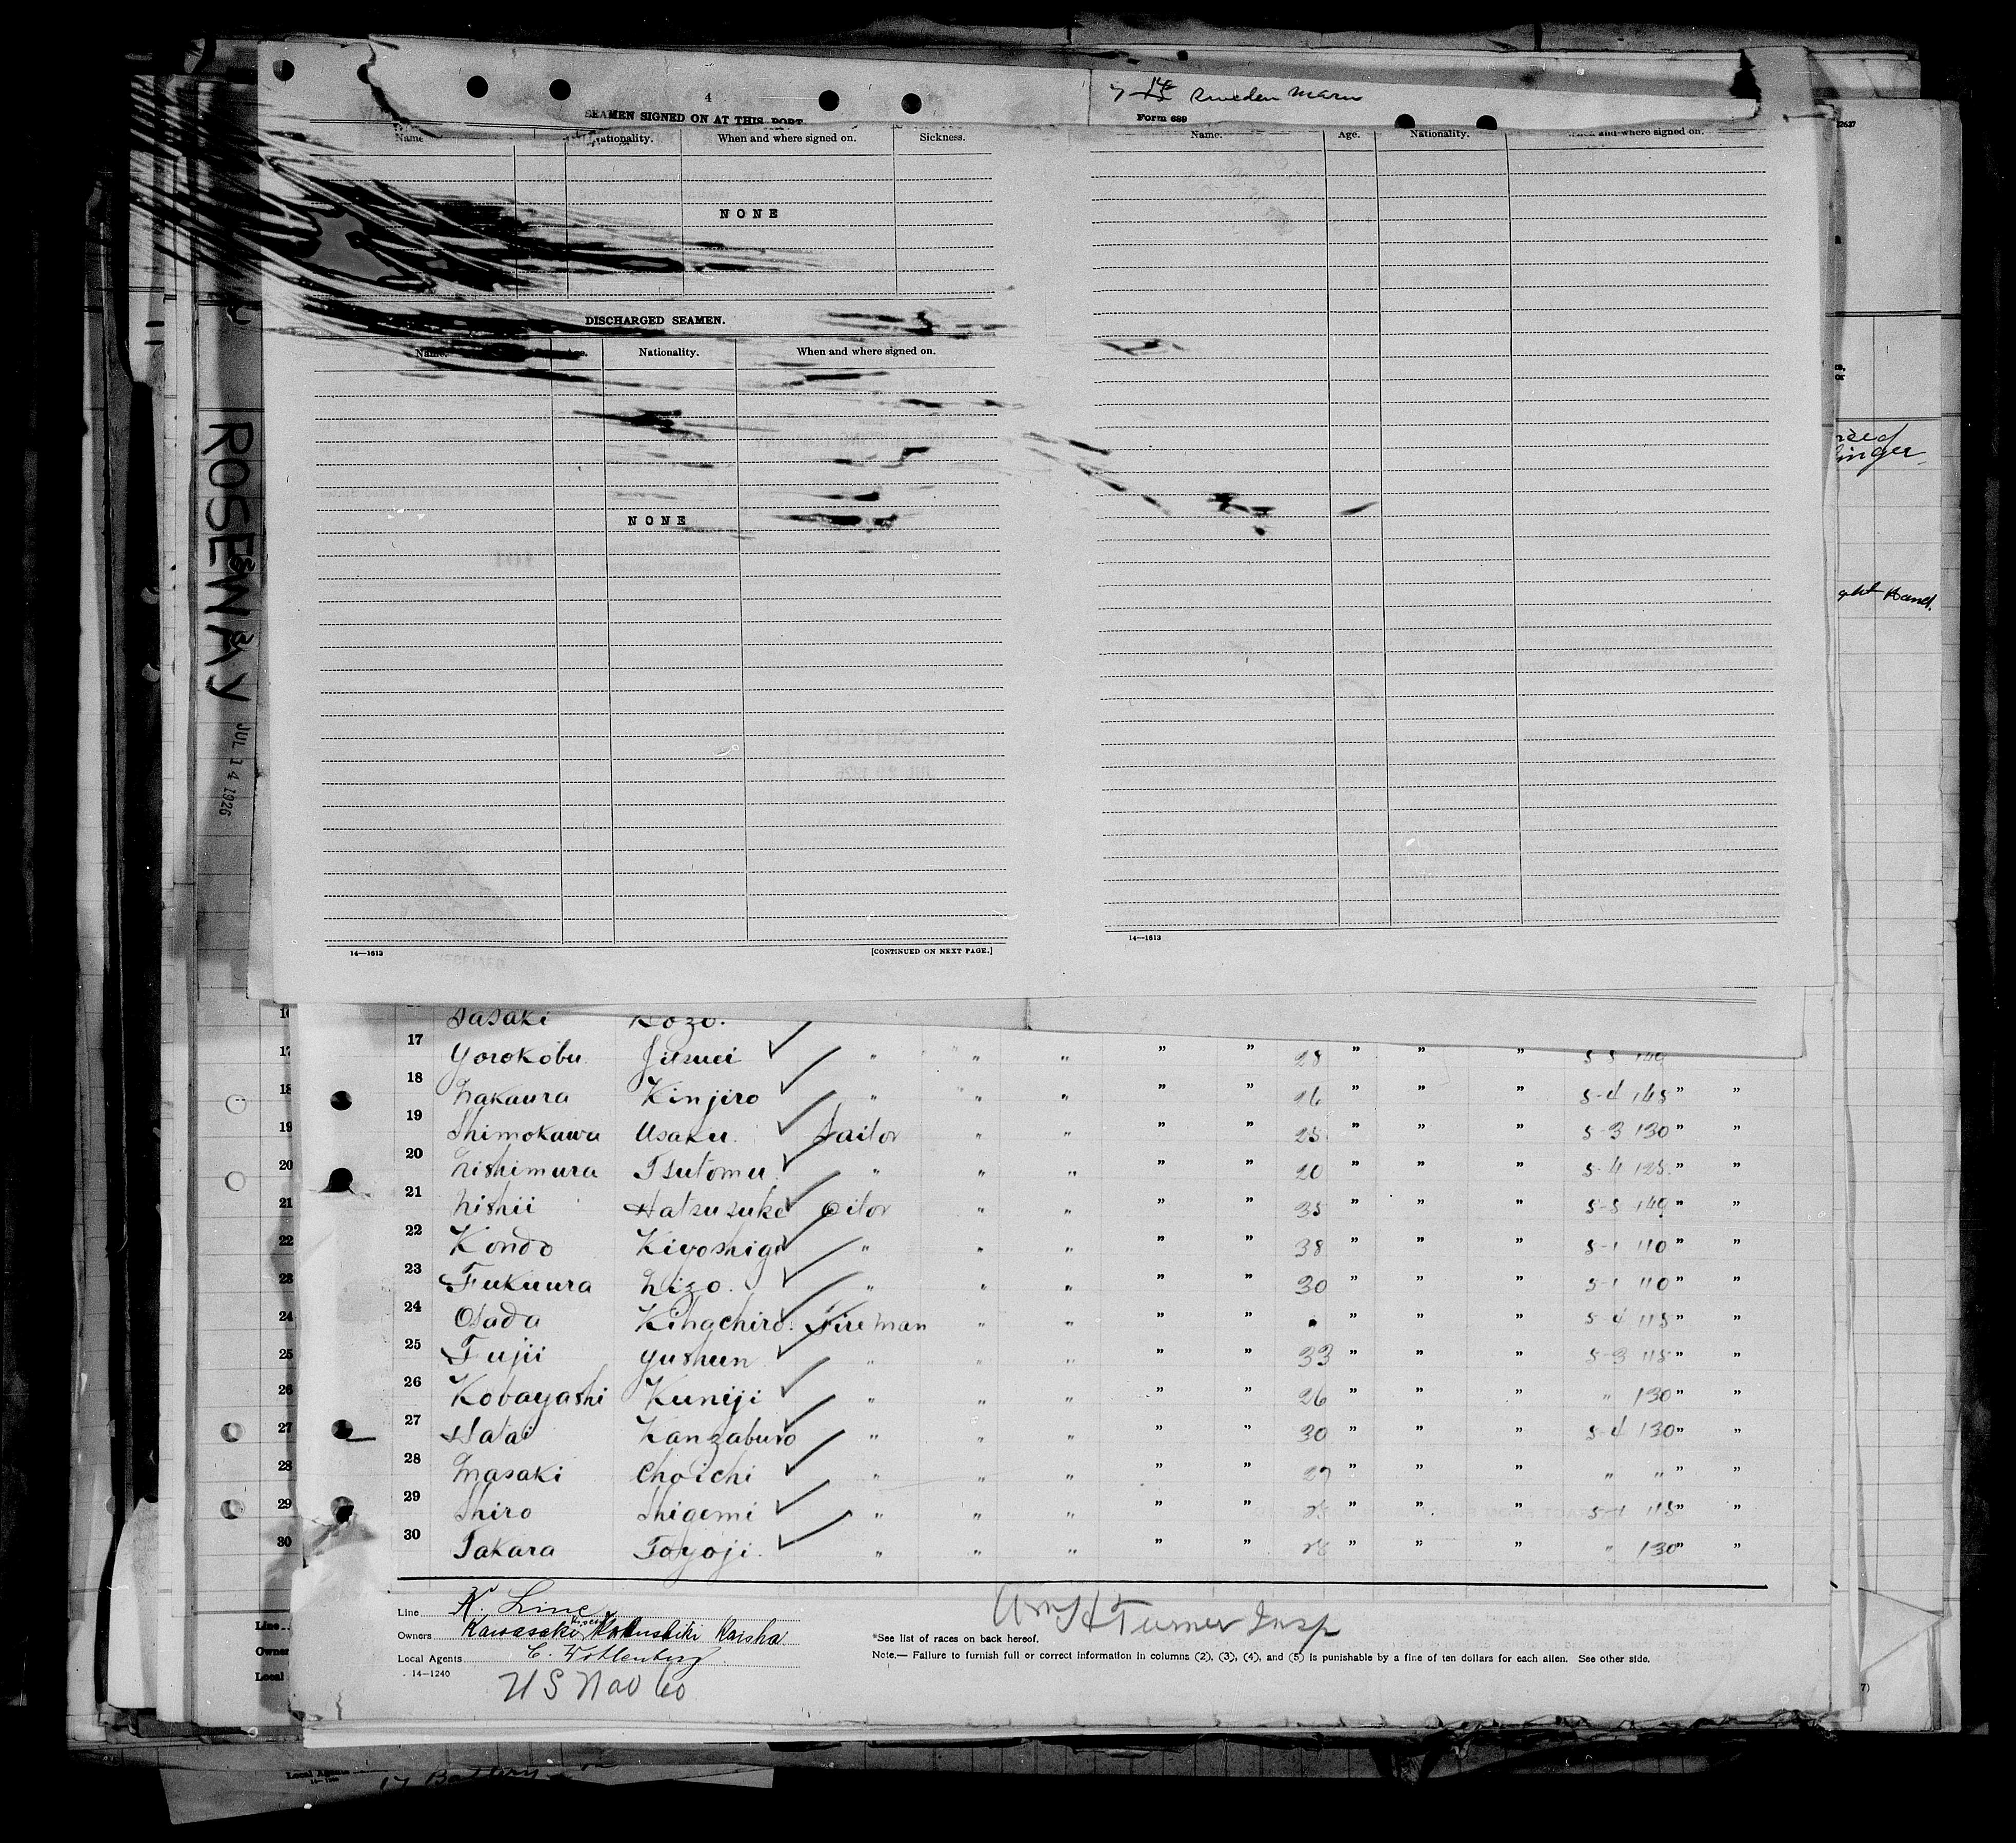 4
7-15 Sweden Maru
SEAMEN SIGNED ON AT THIS PORT
Form 689
Name Nationality. When and where signed on. Sickness.
NONE
DISCHARGED SEAMEN.
Name. Age. Nationality. When and where signed on.
NONE
14—1613 [CONTINUED ON NEXT PAGE.]
Name. Age. Nationality. When and where signed on.
14—1613
ROSEWAY JUL 14 1926
ght Hand.
Sasaki Kozo.
17 Yorokobu Jitsuei " " " " " 28 " " "
18 Nakaura Kinjiro " " " " " 26 " " " 5-4 145 " "
19 Shimokawa Usaku. Sailor " " " " 25 " " " 5-3 130 " "
20 Nishimura Tsutomu. " " " " " 20 " " " 5-4 125 " "
21 Nishii Hatsusuke Oiler " " " " 35 " " " 5-5 149 " "
22 Kondo Kiyoshige " " " " " 38 " " " 5-1 110 " "
23 Fukuura Nizo. " " " " " 30 " " " 5-1 110 " "
24 Osada Kihachiro. Fireman " " " " " " " 5-4 115 " "
25 Fujii Yushun " " " " " 33 " " " 5-3 115 " "
26 Kobayashi Kuniji " " " " " 26 " " " " 130 " "
27 Hatai Kanzaburo " " " " " 30 " " " 5-4 130 " "
28 Masaki Choichi " " " " " 27 " " " " " " "
29 Shiro Shigemi " " " " " " " " 115 " "
30 Takara Toyoji. " " " " " " " " " 130 " "
Line K. Line
Owners Kawasaki Kisen Kabushiki Kaisha
Local Agents C. Wohlenberg
14—1240
Wm H Turner Insp
*See list of races on back hereof.
Note.— Failure to furnish full or correct information in columns (2), (3), (4), and (5) is punishable by a fine of ten dollars for each alien. See other side.
17
18
19
20
21
22
23
24
25
26
27
28
29
30
Line
Owner
Local
Local Agents
17 Battery